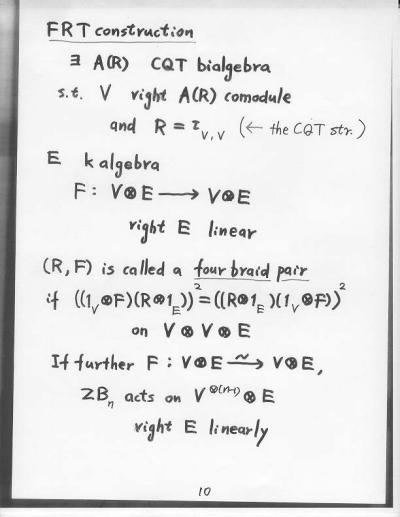 FRT construction
∃ A(R) CQT bialgebra
s.t. V right A(R) comodule
and R = τ_{V,V} (← the CQT str.)
E k algebra
F : V⊗E ⟶ V⊗E
right E linear
(R, F) is called a four braid pair
if ((1_V⊗F)(R⊗1_E))² = ((R⊗1_E)(1_V⊗F))²
on V ⊗ V ⊗ E
If further F : V⊗E ⥲ V⊗E,
ZB_n acts on V^{⊗(n-1)} ⊗ E
right E linearly
10